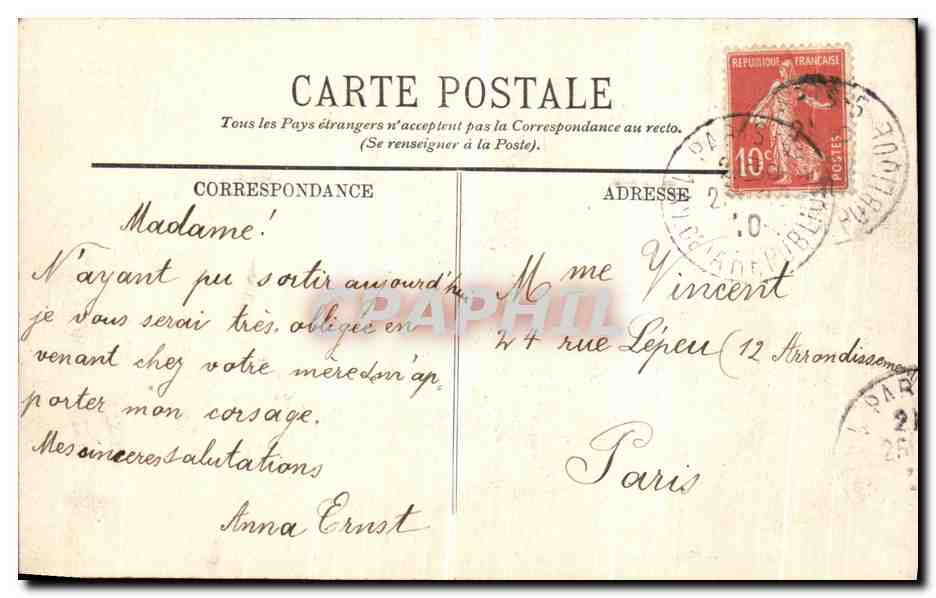 CARTE POSTALE
Tous les Pays étrangers n'acceptent pas la Correspondance au recto.
(Se renseigner à la Poste).
CORRESPONDANCE
Madame!
N'ayant pu sortir aujourd'hui
je vous serai très obligée en
venant chez votre mère de m'ap-
porter mon corsage.
Mes sinceres salutations
Anna Ernst
ADRESSE
Mme Vincent
24 rue Lépeu (12 Arrondissement
Paris
REPUBLIQUE FRANÇAISE
10c
POSTES
PARIS
10
PL. DE LA REPUBLIQUE
REPUBLIQUE
PAR
CPAPHIL